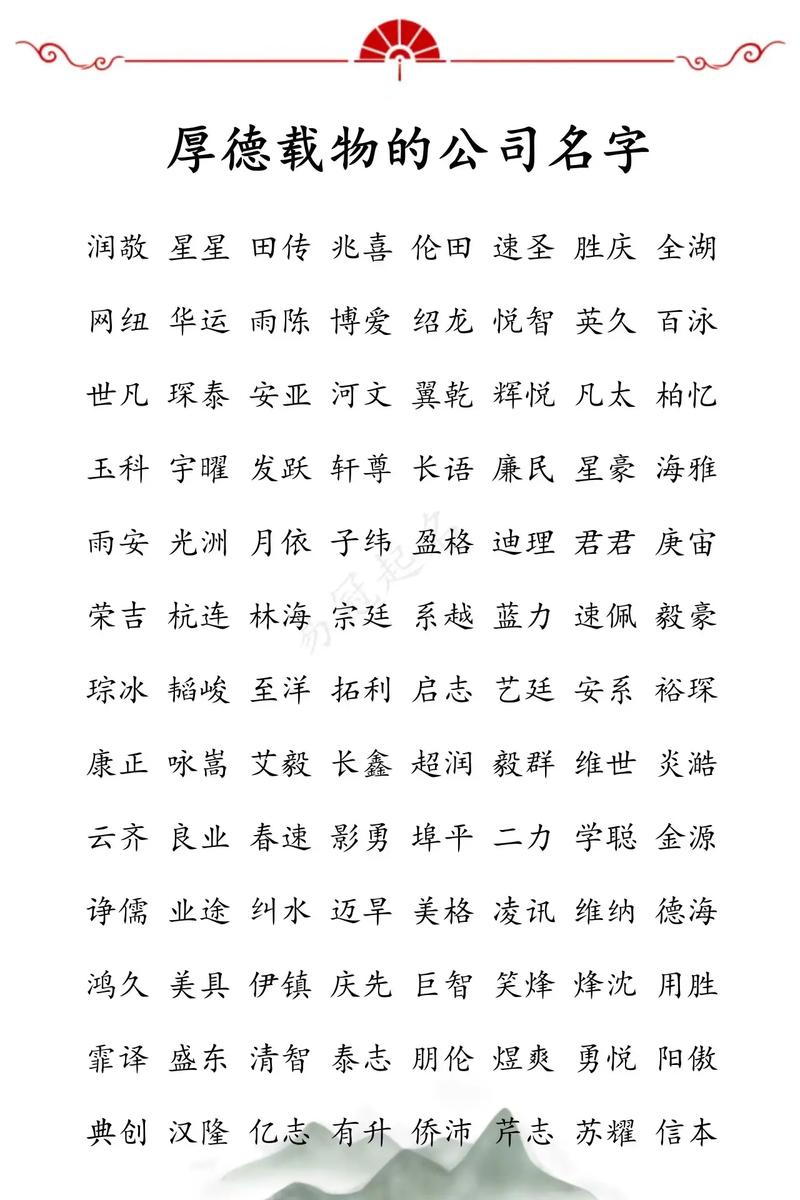 厚德载物的公司名字
润敬 星星 田传 兆喜 伦田 速圣 胜庆 全湖
网纽 华运 雨陈 博爱 绍龙 悦智 英久 百泳
世凡 琛泰 安亚 河文 翼乾 辉悦 凡太 柏忆
玉科 宇曜 发跃 轩尊 长语 廉民 星豪 海雅
雨安 光洲 月依 子纬 盈格 迪理 君君 庚宙
荣吉 杭连 林海 宗廷 系越 蓝力 速佩 毅豪
琮冰 韬峻 至洋 拓利 启志 艺廷 安系 裕琛
康正 咏嵩 艾毅 长鑫 超润 毅群 维世 炎澔
云齐 良业 春速 影勇 埠平 二力 学聪 金源
诤儒 业途 纠水 迈旱 美格 凌讯 维纳 德海
鸿久 美具 伊镇 庆先 巨智 笑烽 烽沈 用胜
霏译 盛东 清智 泰志 朋伦 煜爽 勇悦 阳傲
典创 汉隆 亿志 有升 侨沛 芹志 苏耀 信本